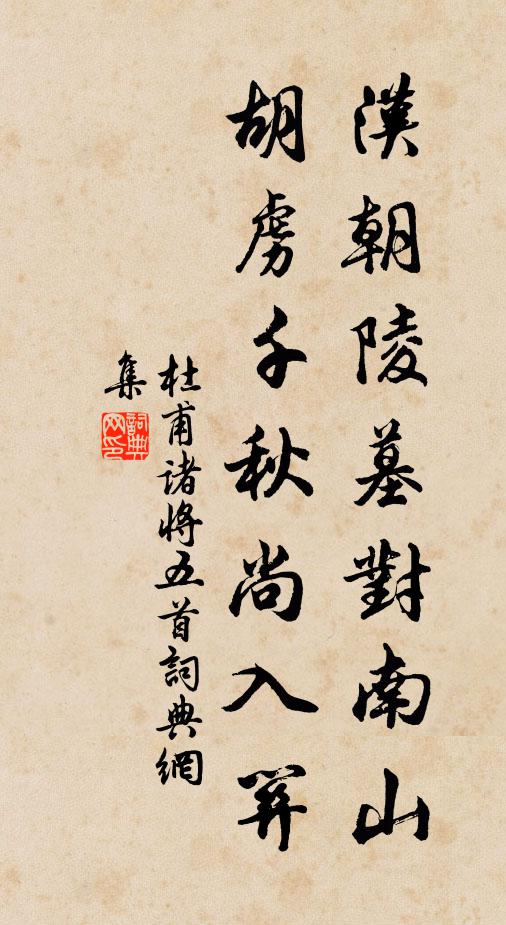 漢朝陵墓對南山
胡虜千秋尚入關
杜甫諸將五首詞典網
集
詞典
网印